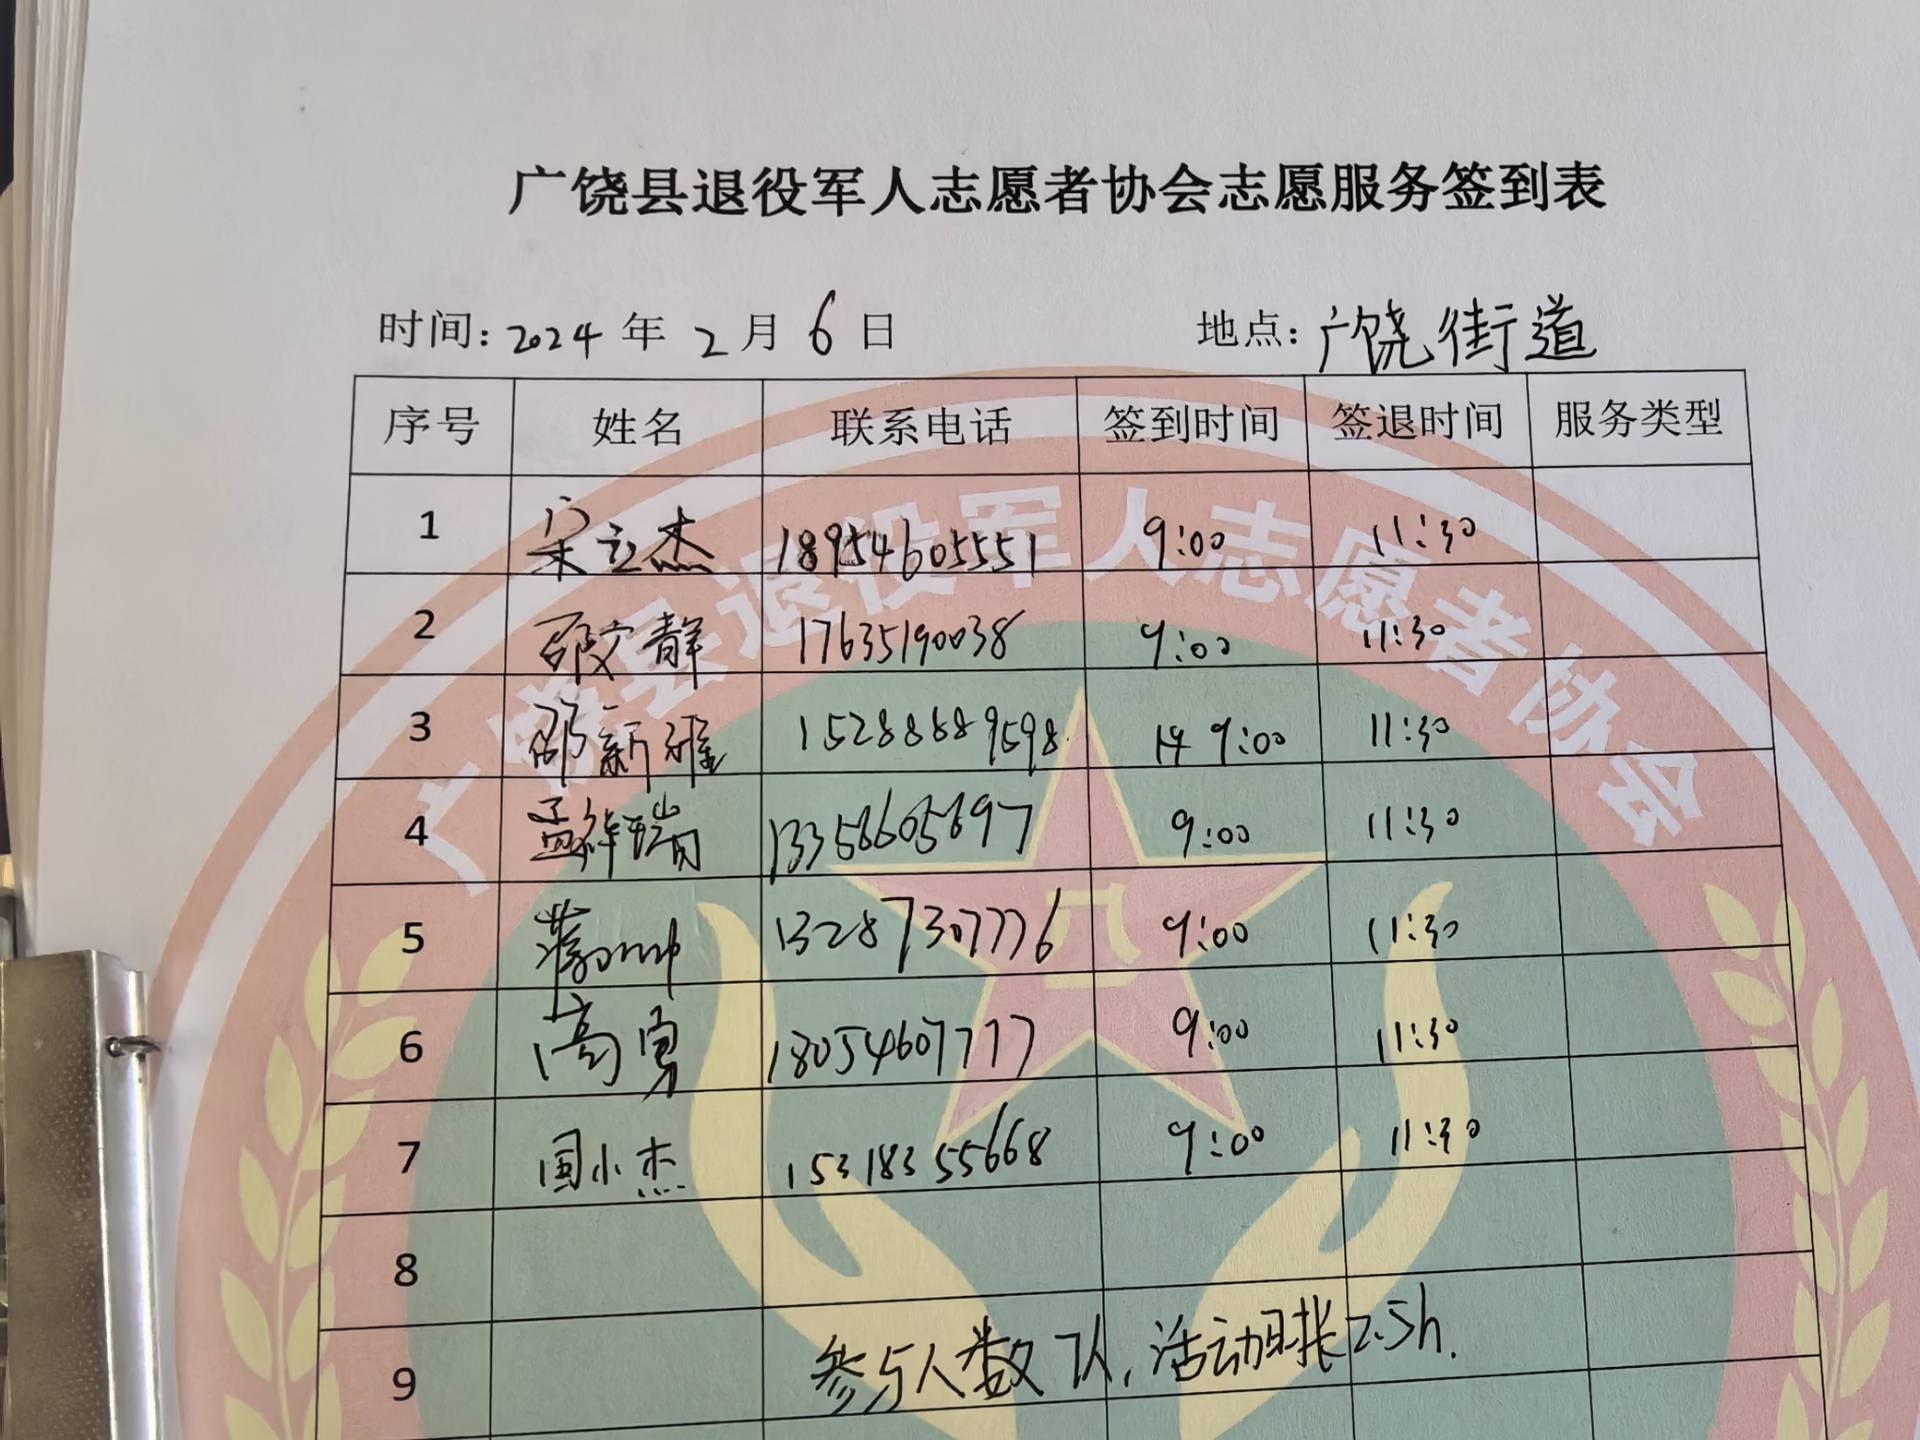 广饶县退役军人志愿者协会志愿服务签到表
时间: 2024 年 2 月 6 日 地点: 广饶街道
序号 姓名 联系电话 签到时间 签退时间 服务类型
1 宋立杰 18954605551 9:00 11:30
2 邵文静 17635190038 9:00 11:30
3 邵新雅 15288889598 9:00 11:30
4 孟祥瑞 13356605697 9:00 11:30
5 蒋帅 13287307776 9:00 11:30
6 高勇 18054607777 9:00 11:30
7 国小杰 15318355668 9:00 11:30
8
9 参与人数7人,活动时长2.5h.
广饶县退役军人志愿者协会
八一